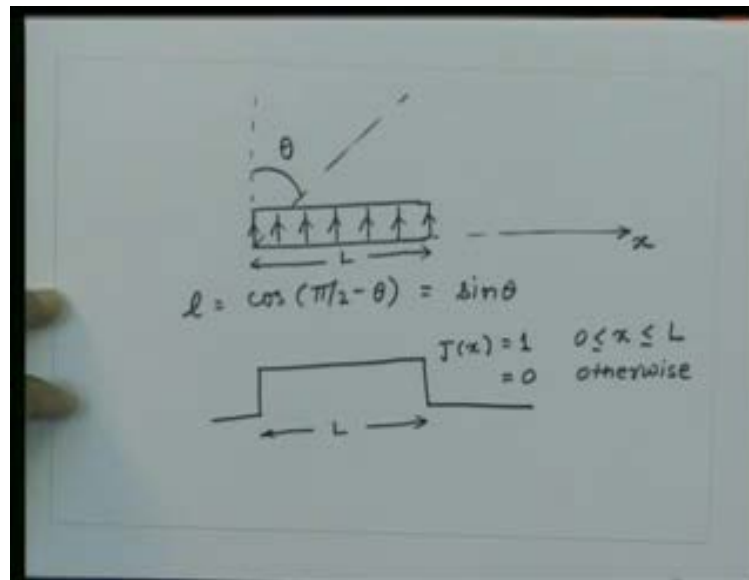 θ
x
L
l = cos (π/2 - θ) = sinθ
J(x) = 1 0 ≤ x ≤ L
= 0 otherwise
L